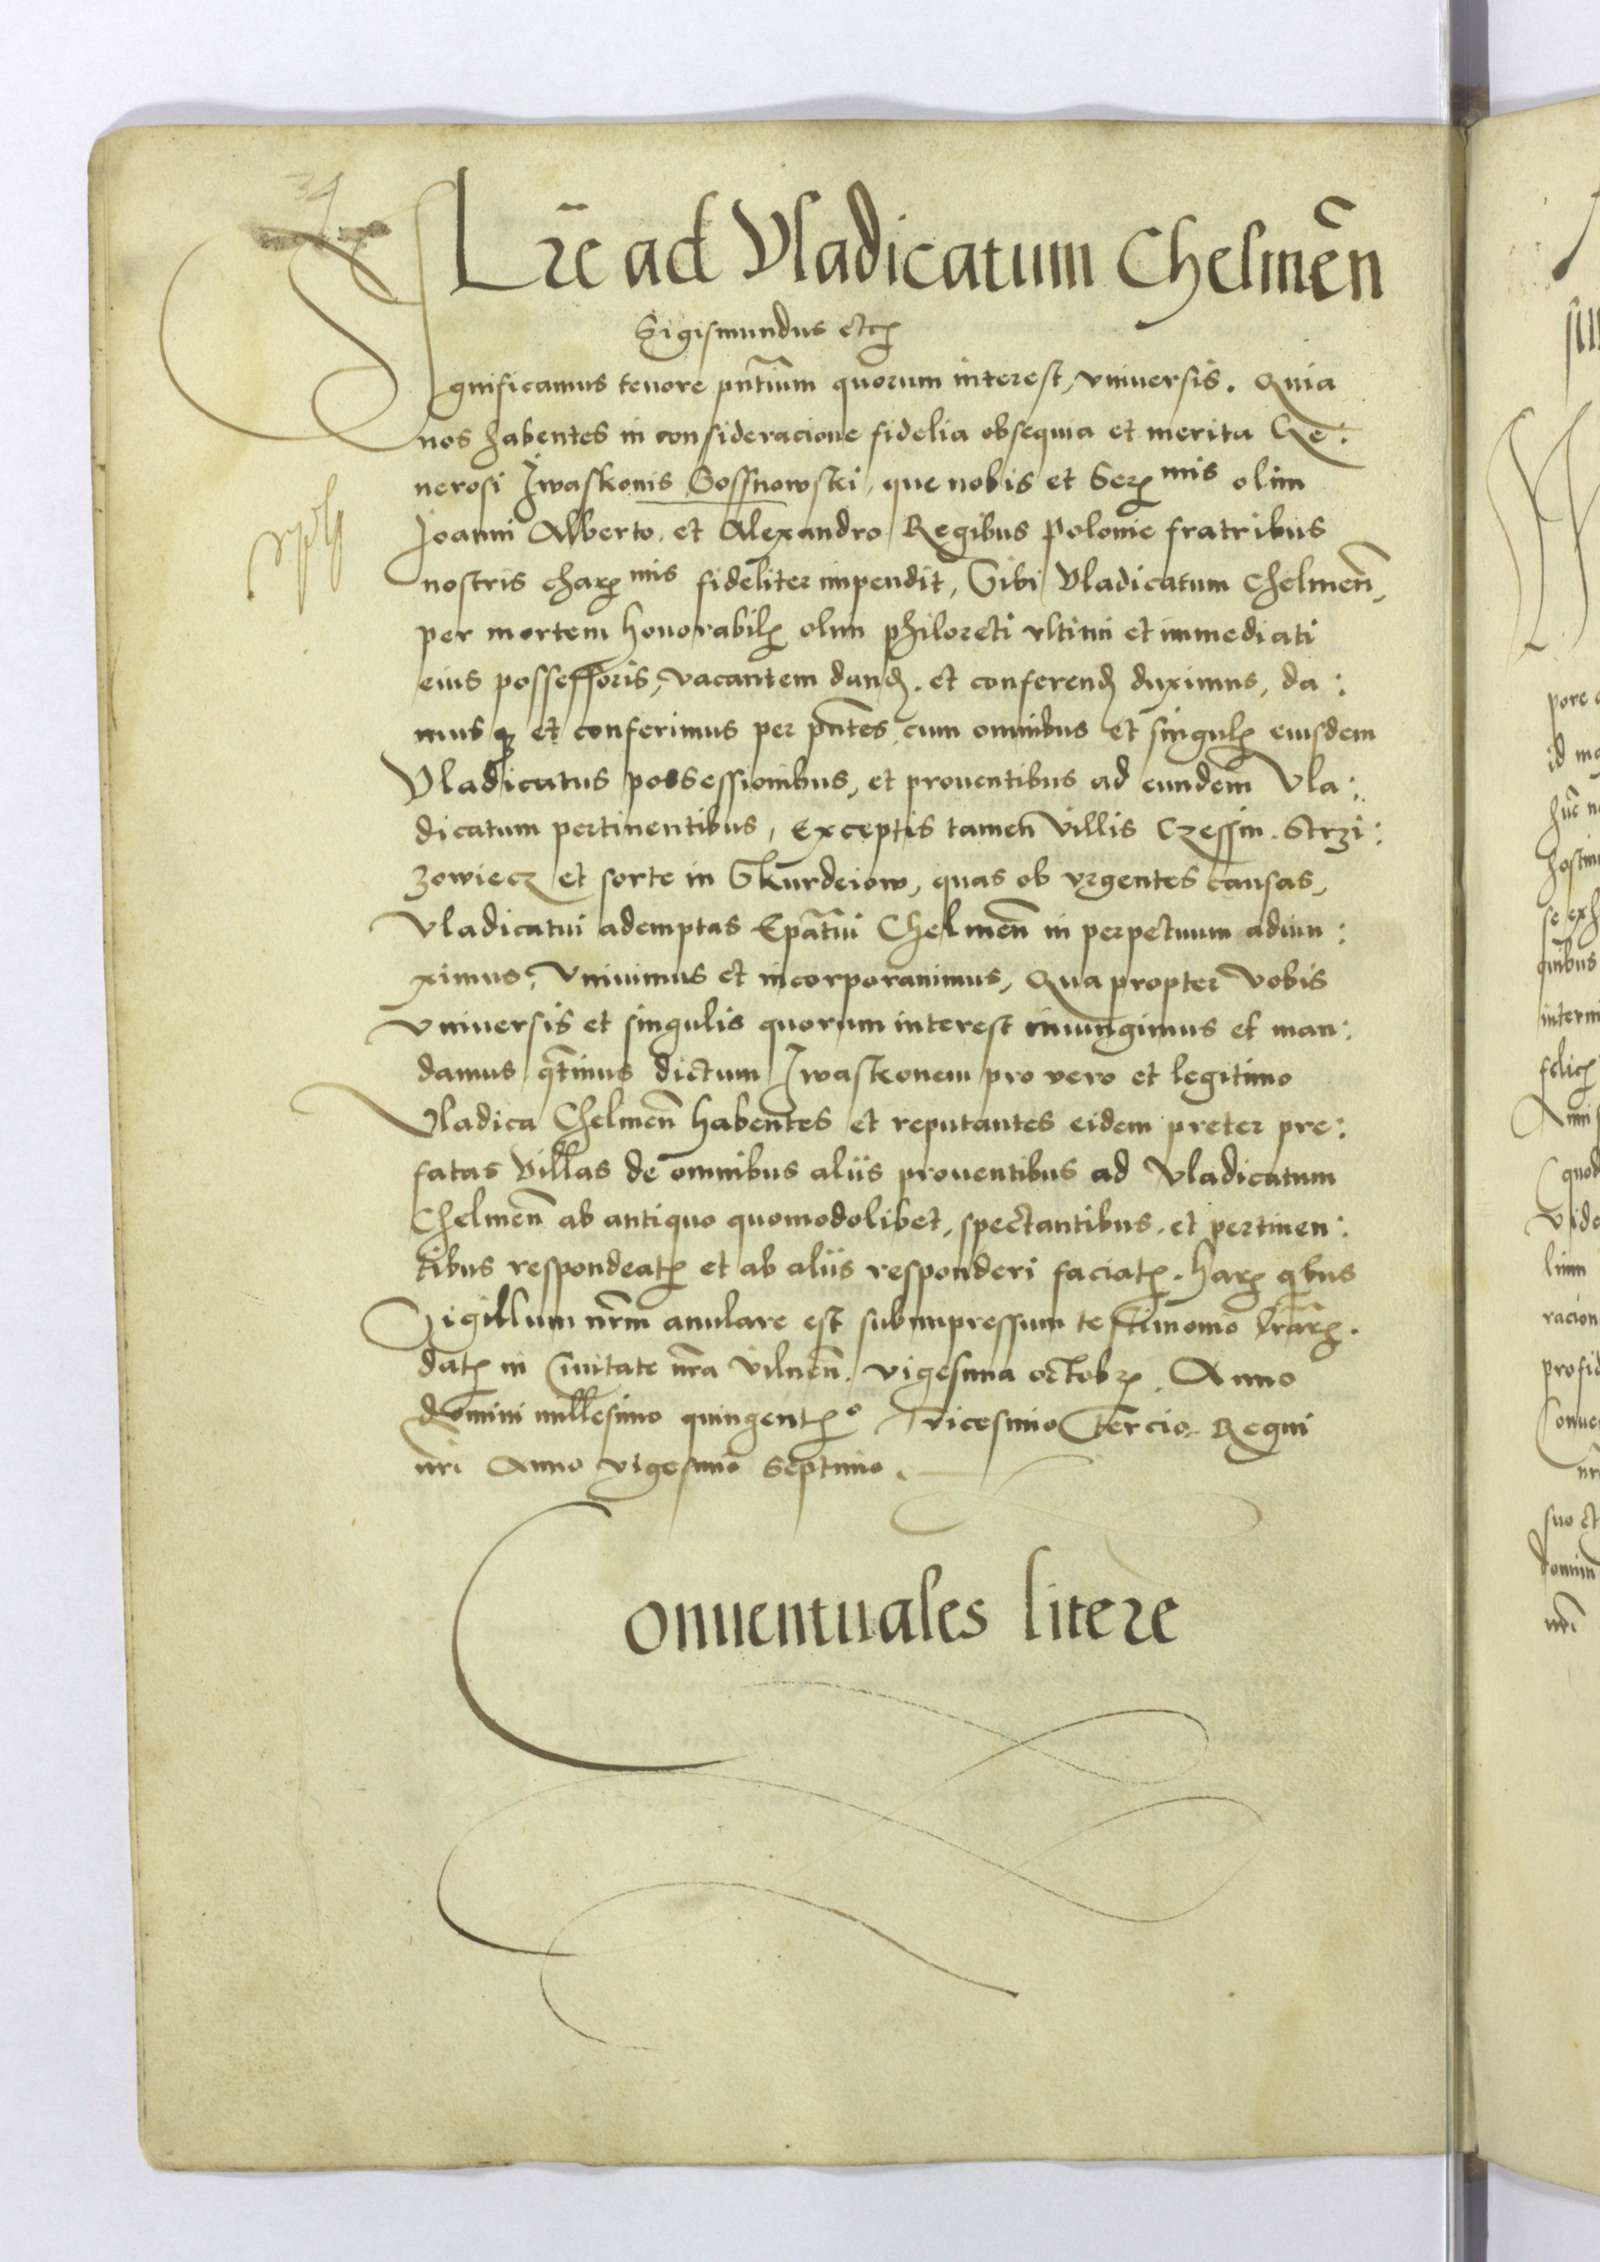 34
Lr̃e ad Vladicatum Chelmeñ
Sigismundus etcꝫ
Significamus tenore pñtium quorum interest, vniuersis. Quia
nos habentes in consideracione fidelia obsequia et merita Ge:
nerosi Jwaskonis Sossnowski, que nobis et Serꝫmis olim
Joanni Alberto, et Alexandro Regibus Polonie fratribus
nostris charꝫmis fideliter impendit, Sibi Vladicatum Chelmeñ,
per mortem honorabilꝫ olim philoreti vltimi et immediati
eius possessoris, vacantem dandꝫ. et conferendꝫ duximus, da:
musqꝫ et conferimus per pñtes, cum omnibus et singulꝫ eiusdem
Vladicatus possessionibus, et prouentibus ad eundem Vla:
dicatum pertinentibus, Exceptis tamen villis Czessin. Strzi:
zowiecz et sorte in Skurdeiow, quas ob vrgentes causas,
Vladicatui ademptas Ep̃atui Chelmeñ in perpetuum adiun:
ximus, Vniuimus et incorporauimus, Qua propter vobis
vniuersis et singulis quorum interest iniungimus et man:
damus q̃tinus dictum Jwaskonem pro vero et legitimo
Vladica Chelmeñ habentes et reputantes eidem preter pre:
fatas Villas de omnibus aliis prouentibus ad Vladicatum
Chelmeñ ab antiquo quomodolibet, spectantibus. et pertinen:
tibus respondeatꝫ et ab aliis responderi faciatꝫ. harꝫ qbus
Sigillum nr̃m anulare est subimpressum testimonio lr̃arꝫ.
datꝫ in Ciuitate nr̃a Vilneñ. vigesima octobrꝫ. Anno
domini millesimo quingentꝫo Tricesimo Tercio. Regni
nr̃i Anno vigesimo septimo.
Conuentuales litere